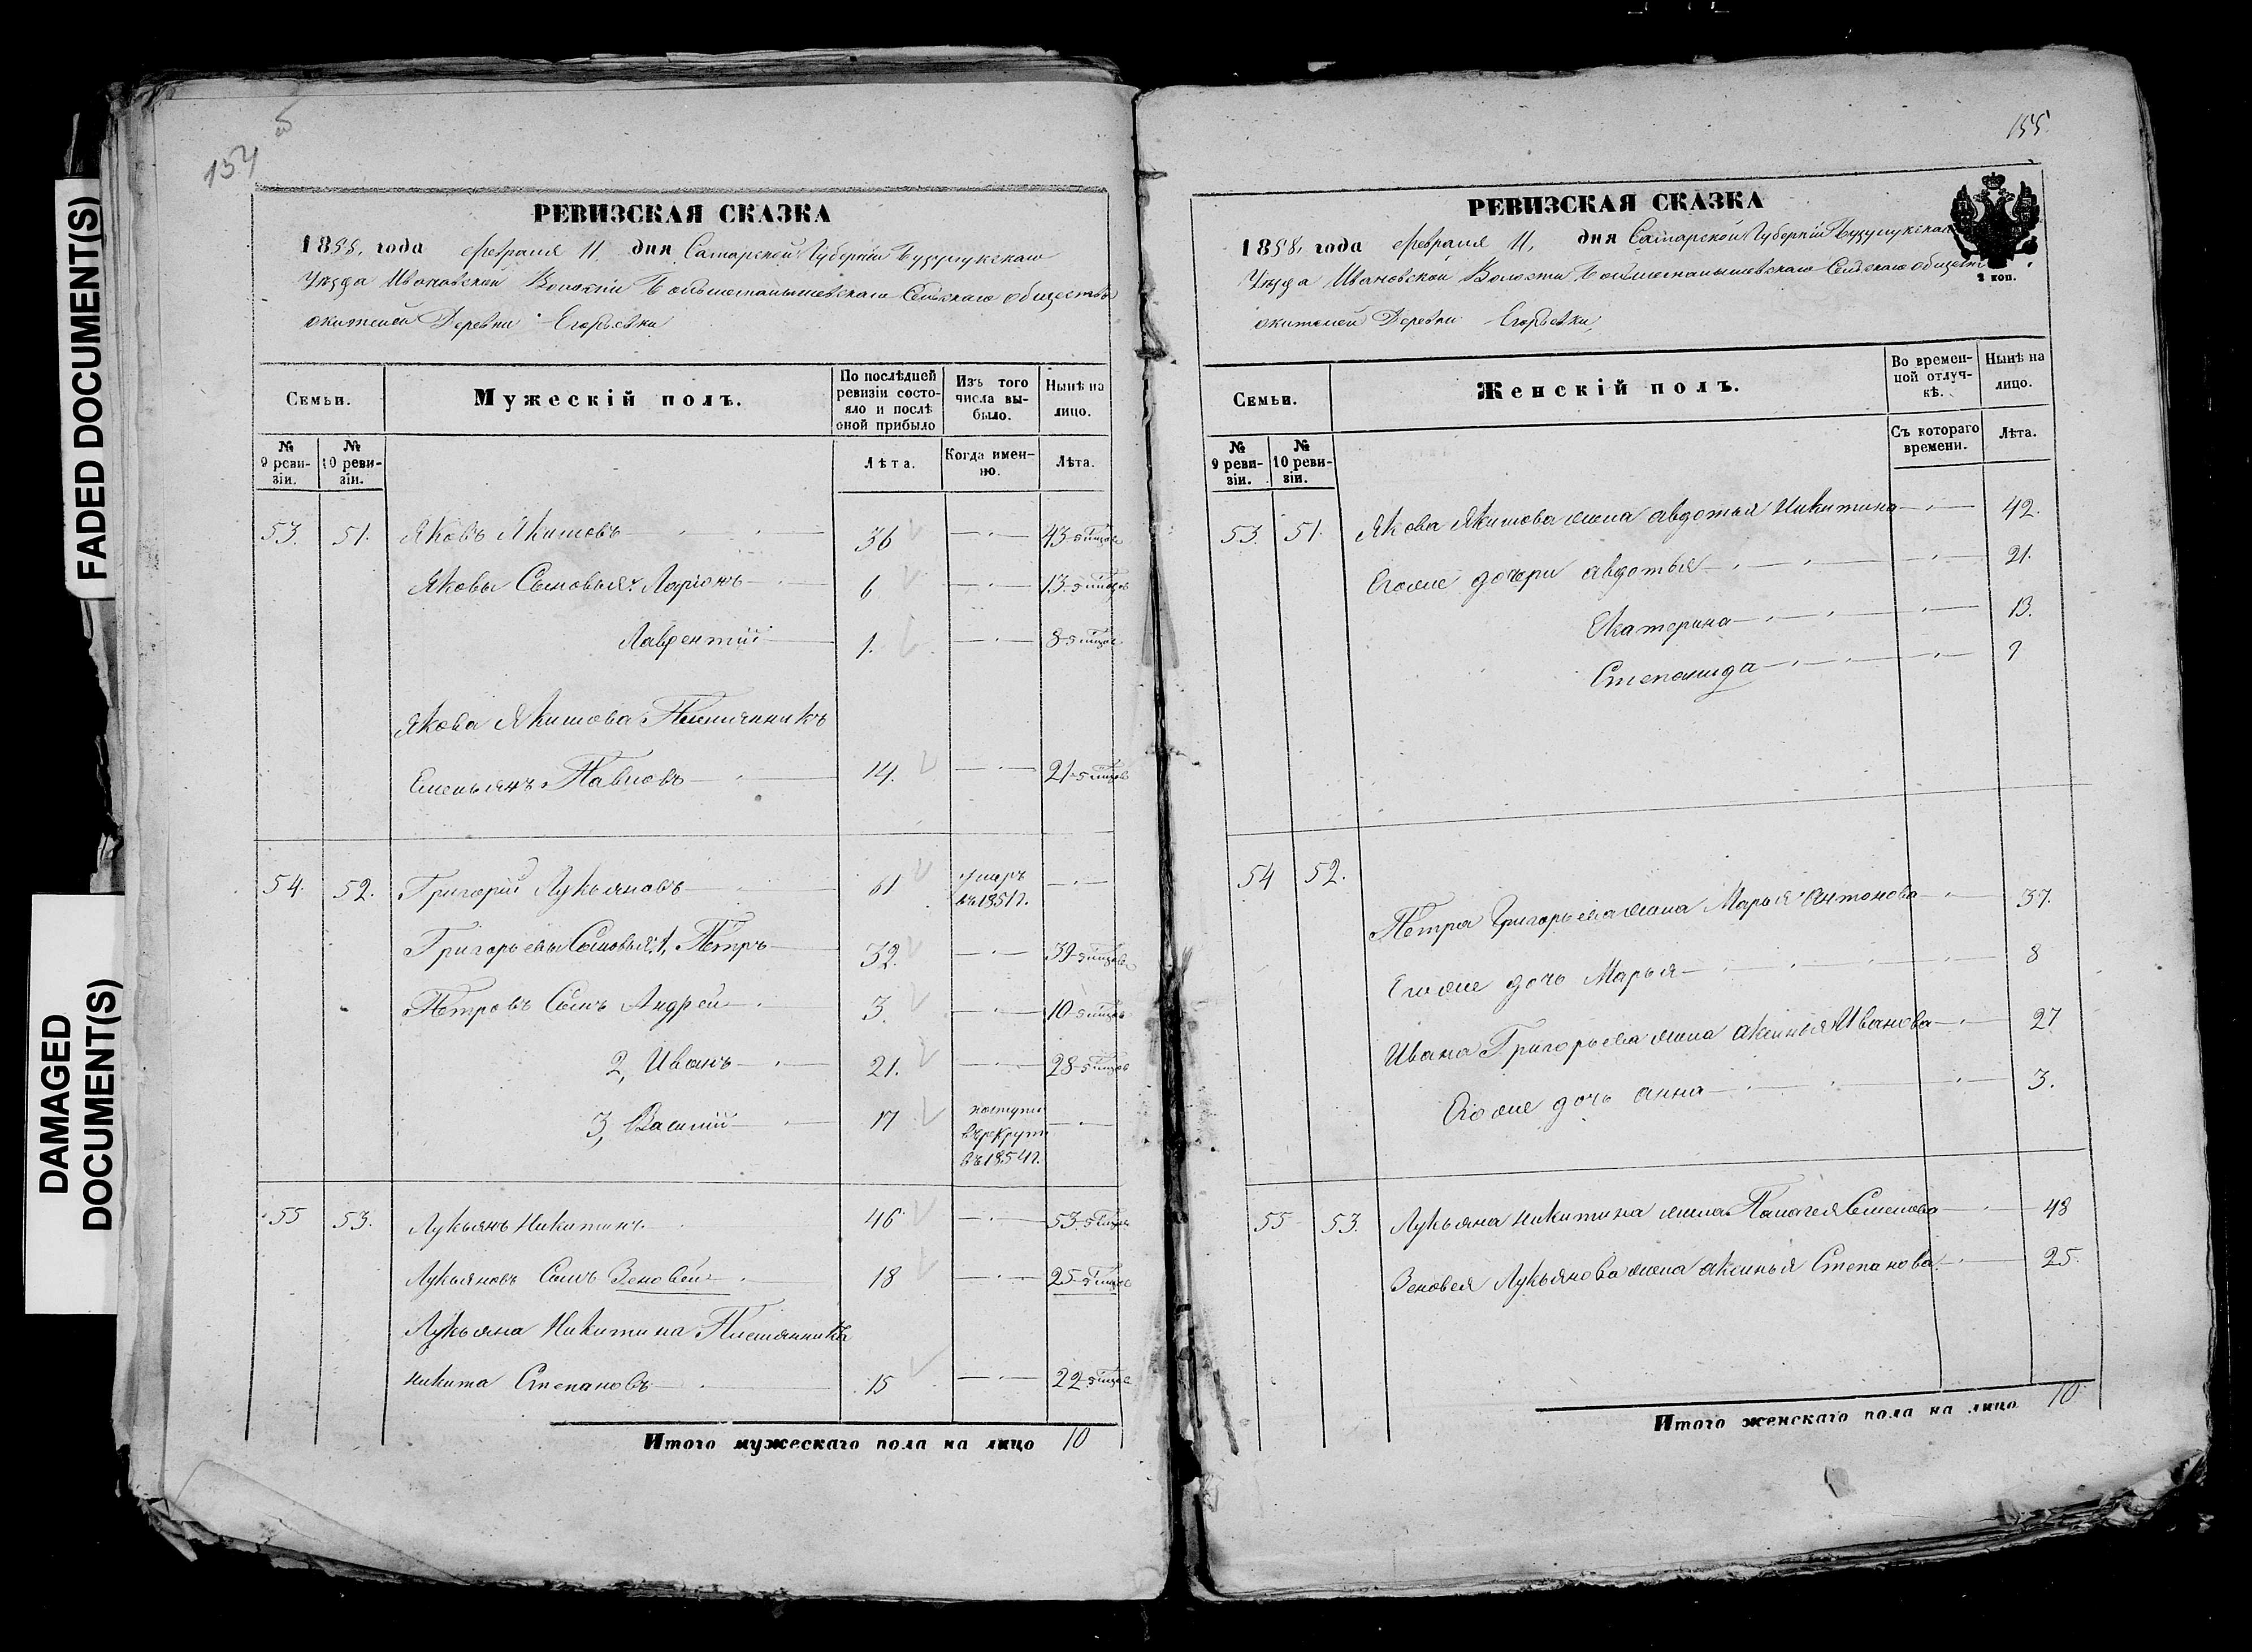 FADED DOCUMENT(S)
DAMAGED
DOCUMENT(S)
154
РЕВИЗСКАЯ СКАЗКА
1858. года февраля 11 дня Самарской Губерніи Бузулукскаго
Уезда Ивановской Волости Сельскаго общества
жителей Деревни Егорьевки
Семьи.
Мужескій полъ.
По послѣдней ревизіи состояло и послѣ оной прибыло
Изъ того числа выбыло.
Нынѣ на лицо.
№ 9 ревизіи.
№ 10 ревизіи.
Лѣта.
Когда именно.
Лѣта.
53. 51. Яковъ Якимовъ 36 43
Яковы Сыновья 1. Ларіонъ 6 13
Лаврентій 1. 8
Якова Якимова Племянникъ
Емельянъ Павловъ 14. 21
54. 52. Григорій Лукьяновъ 61 умеръ въ 1851 г.
Григорьевы Сыновья 1, Петръ 32. 39
Петровъ Сынъ Андрей 3. 10
2, Иванъ 21. 28
3, Василій 17 поступи въ рекруты въ 1854 г.
55 53. Лукьянъ Никитинъ 46 53
Лукьяновъ Сынъ Зеновей 18 25
Лукьяна Никитина Племянникъ
Никита Степановъ 15 22
Итого мужескаго пола на лицо 10
155.
РЕВИЗСКАЯ СКАЗКА
2 коп.
1858. года февраля 11, дня Самарской Губерніи Бузулукскаго
Уезда Ивановской Волости Сельскаго общества
жителей Деревни Егорьевки
Семьи.
Женскій полъ.
Во временной отлучкѣ.
Нынѣ на лицо.
№ 9 ревизіи.
№ 10 ревизіи.
Съ котораго времени.
Лѣта.
53. 51. Якова Якимова жена Авдотья Никитина 42.
Егоже дочери Авдотья 21.
Екатерина 13.
Степанида 9
54 52. Петра Григорьева жена Марья Антонова 37.
Егоже дочь Марья 8
Ивана Григорьева жена Аксинья Иванова 27
Егоже дочь Анна 3.
55 53. Лукьяна Никитина жена Палагея Семенова 48
Зеновея Лукьянова жена Аксинья Степанова 25.
Итого женскаго пола на лицо 10